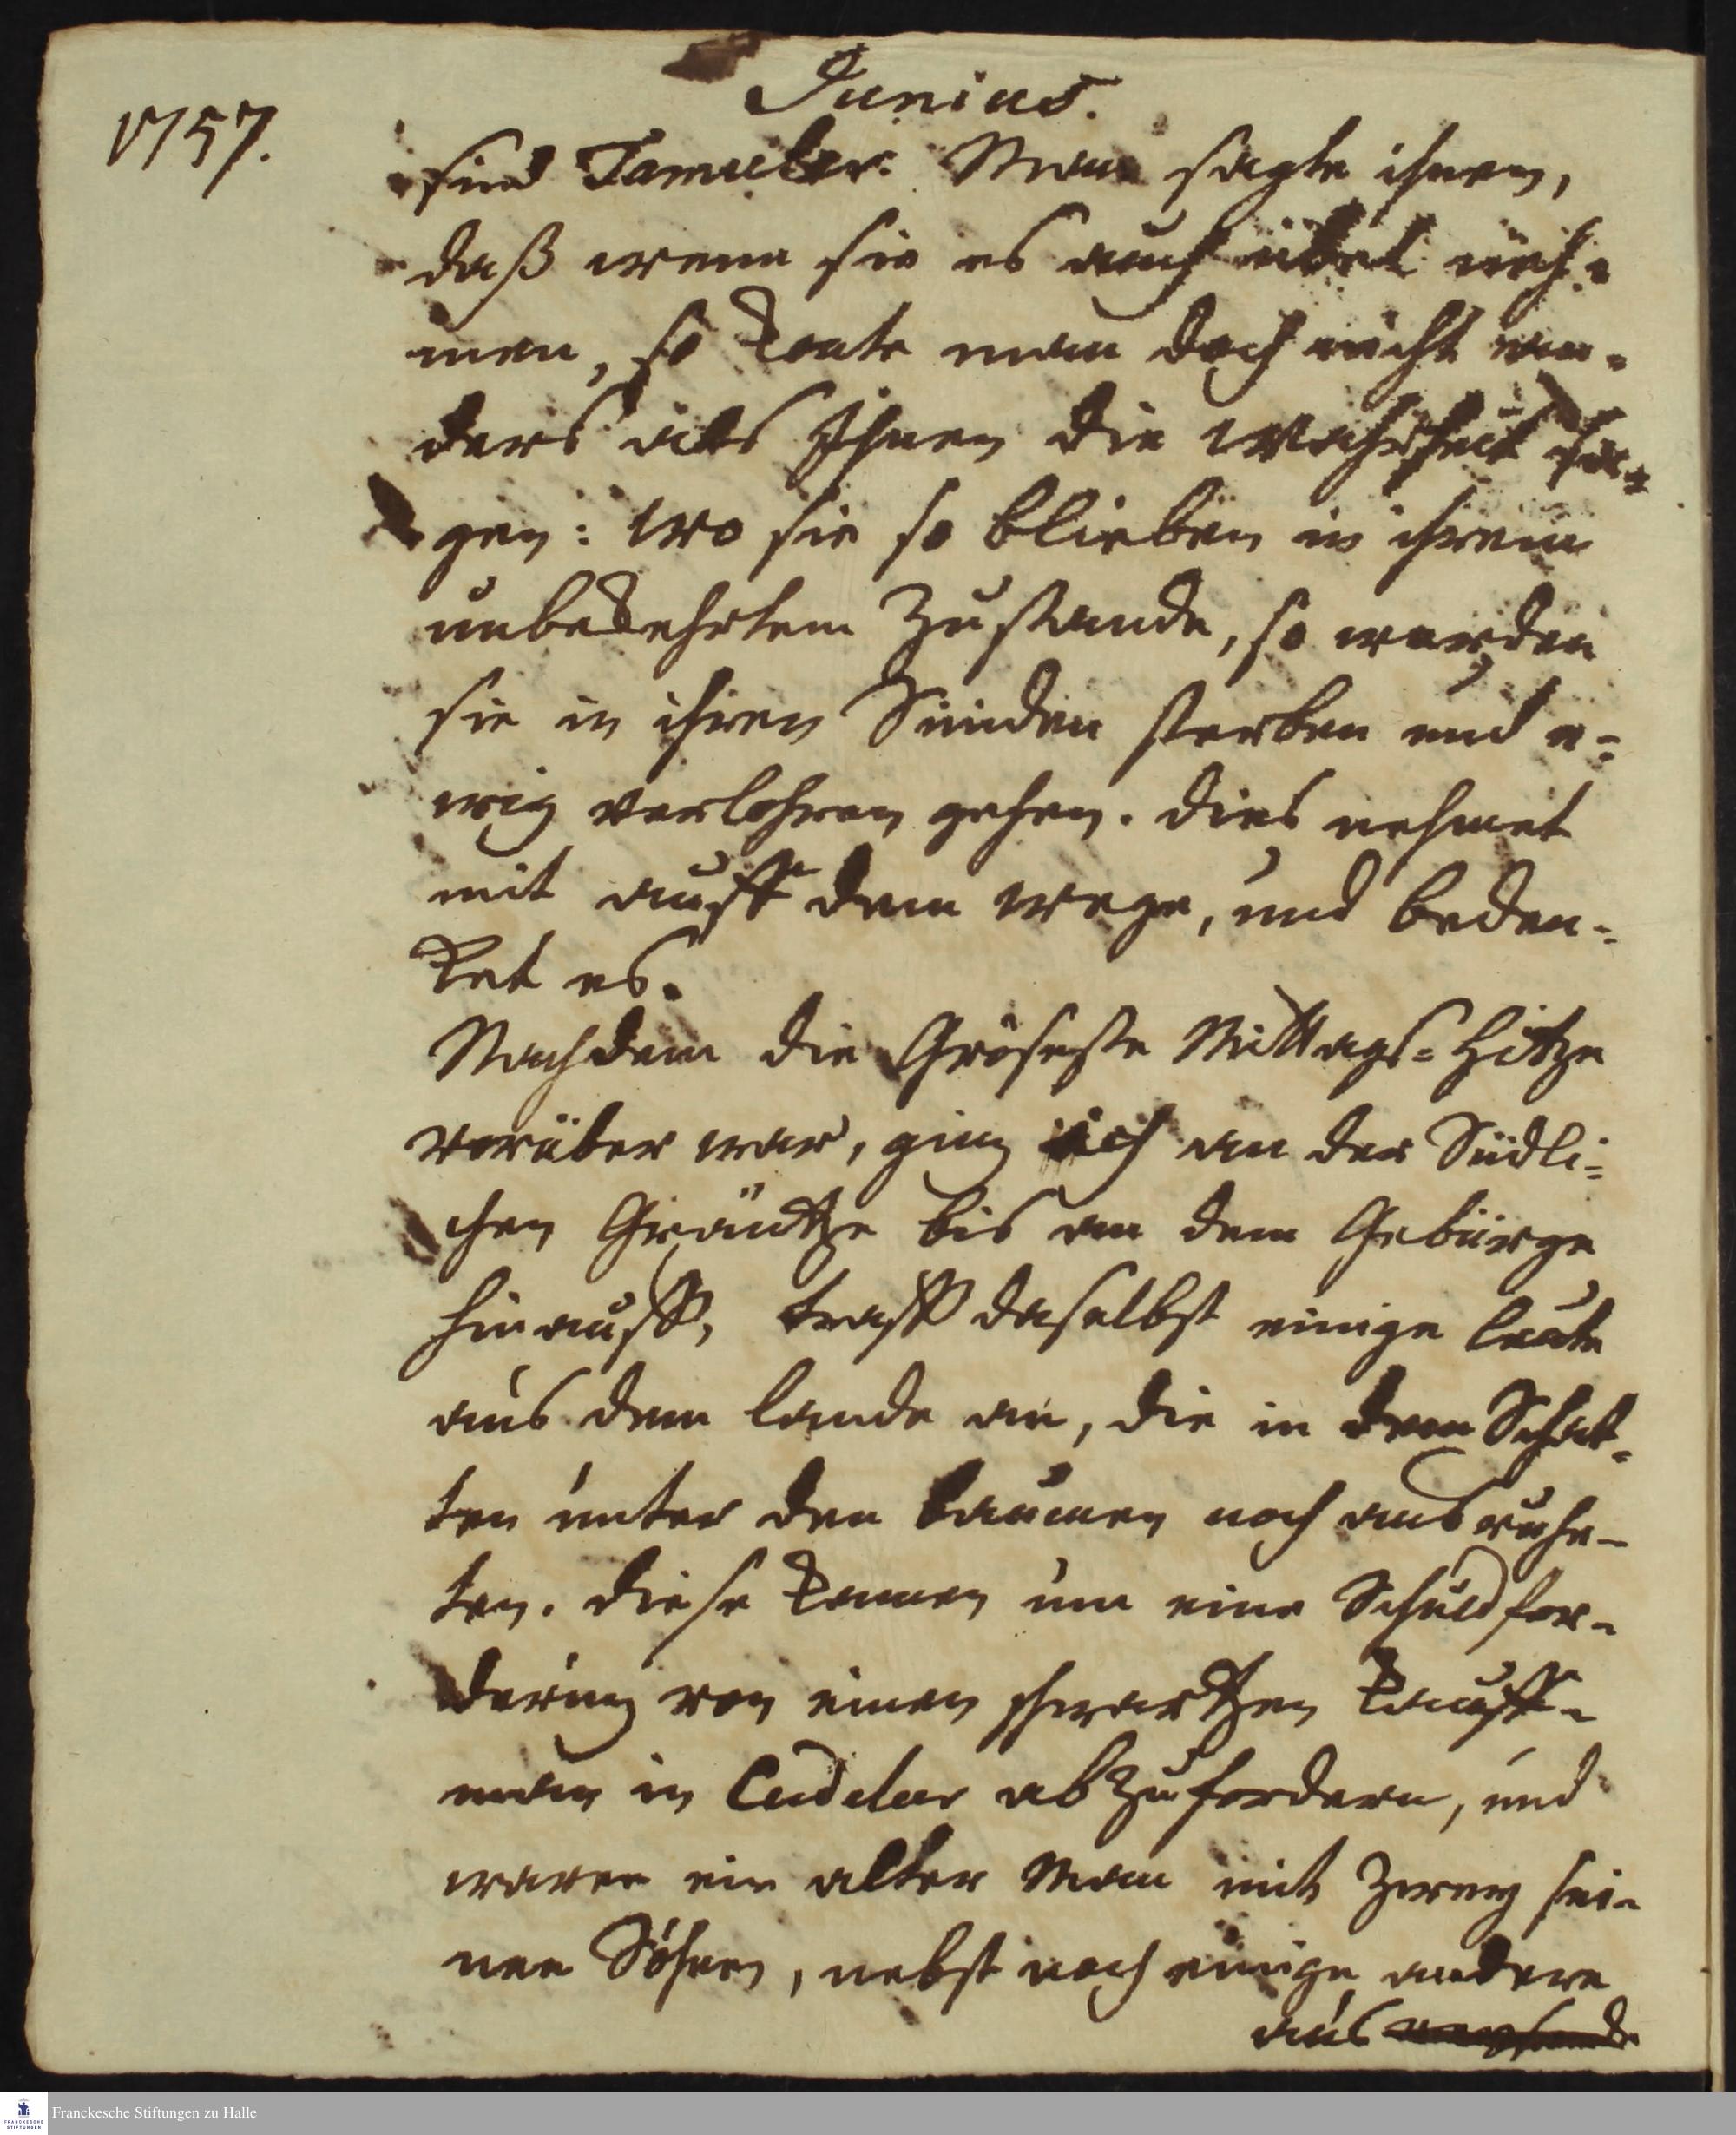 Junius.
1757.
sind Tamuler. Man sagte ihnen,
daß wenn sie es auch übel neh-
men, so konte man doch nicht an-
ders als Ihnen die Wahrheit sa-
gen: wo sie so blieben in ihrem
unbekehrtem Zustande, so werden
sie in ihren Sünden sterben und e-
wig verlohren gehen. dies nehmet
mit auff dem wege, und beden-
ket es.
Nachdem die Gröseste Mittags-Hitze
vorüber war, ging ich an der Südli-
chen Gräntze bis an dem Gebürge
hinauff, traff daselbst einige leute
aus dem lande an, die in dem Schat-
ten unter den baumen noch ausruhe-
ten. diese kamen um eine Schuldfor-
derung von einen schwartzen kauff-
man in Cudelur abzufordern, und
waren ein alter Man mit zwey sei-
nen Söhnen, nebst noch einige andere
aus
Franckesche Stiftungen zu Halle
FRANCKESCHE STIFTUNGEN